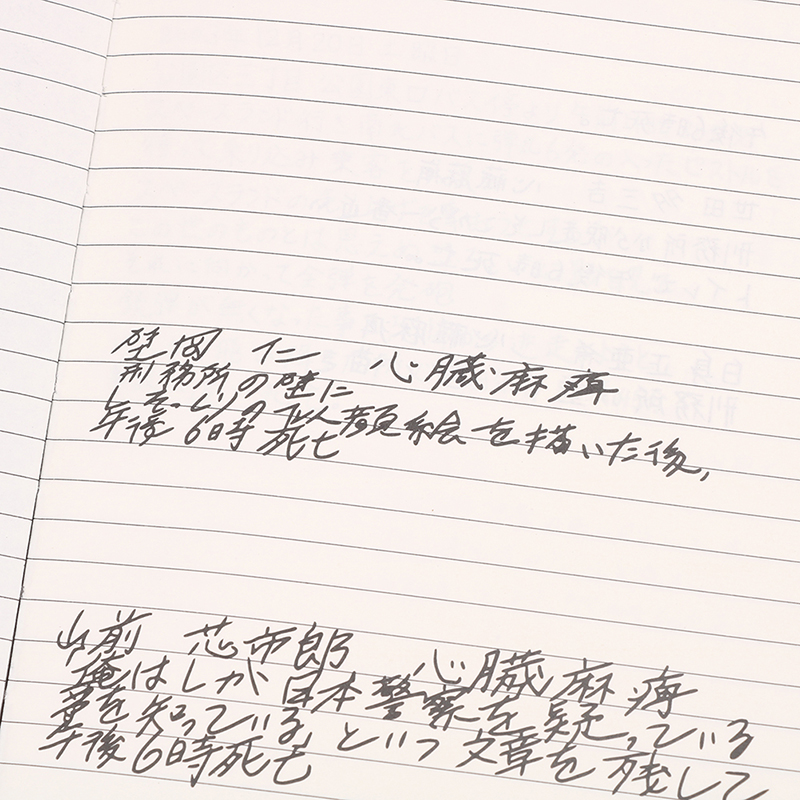 壁岡 仁 心臓麻痺
刑務所の壁に
Lそっくりの似顔絵を描いた後,
午後6時死亡
山前 芯市郎 心臓麻痺
俺はLが日本警察を疑っている
事を知っている,という文章を残して
午後6時死亡